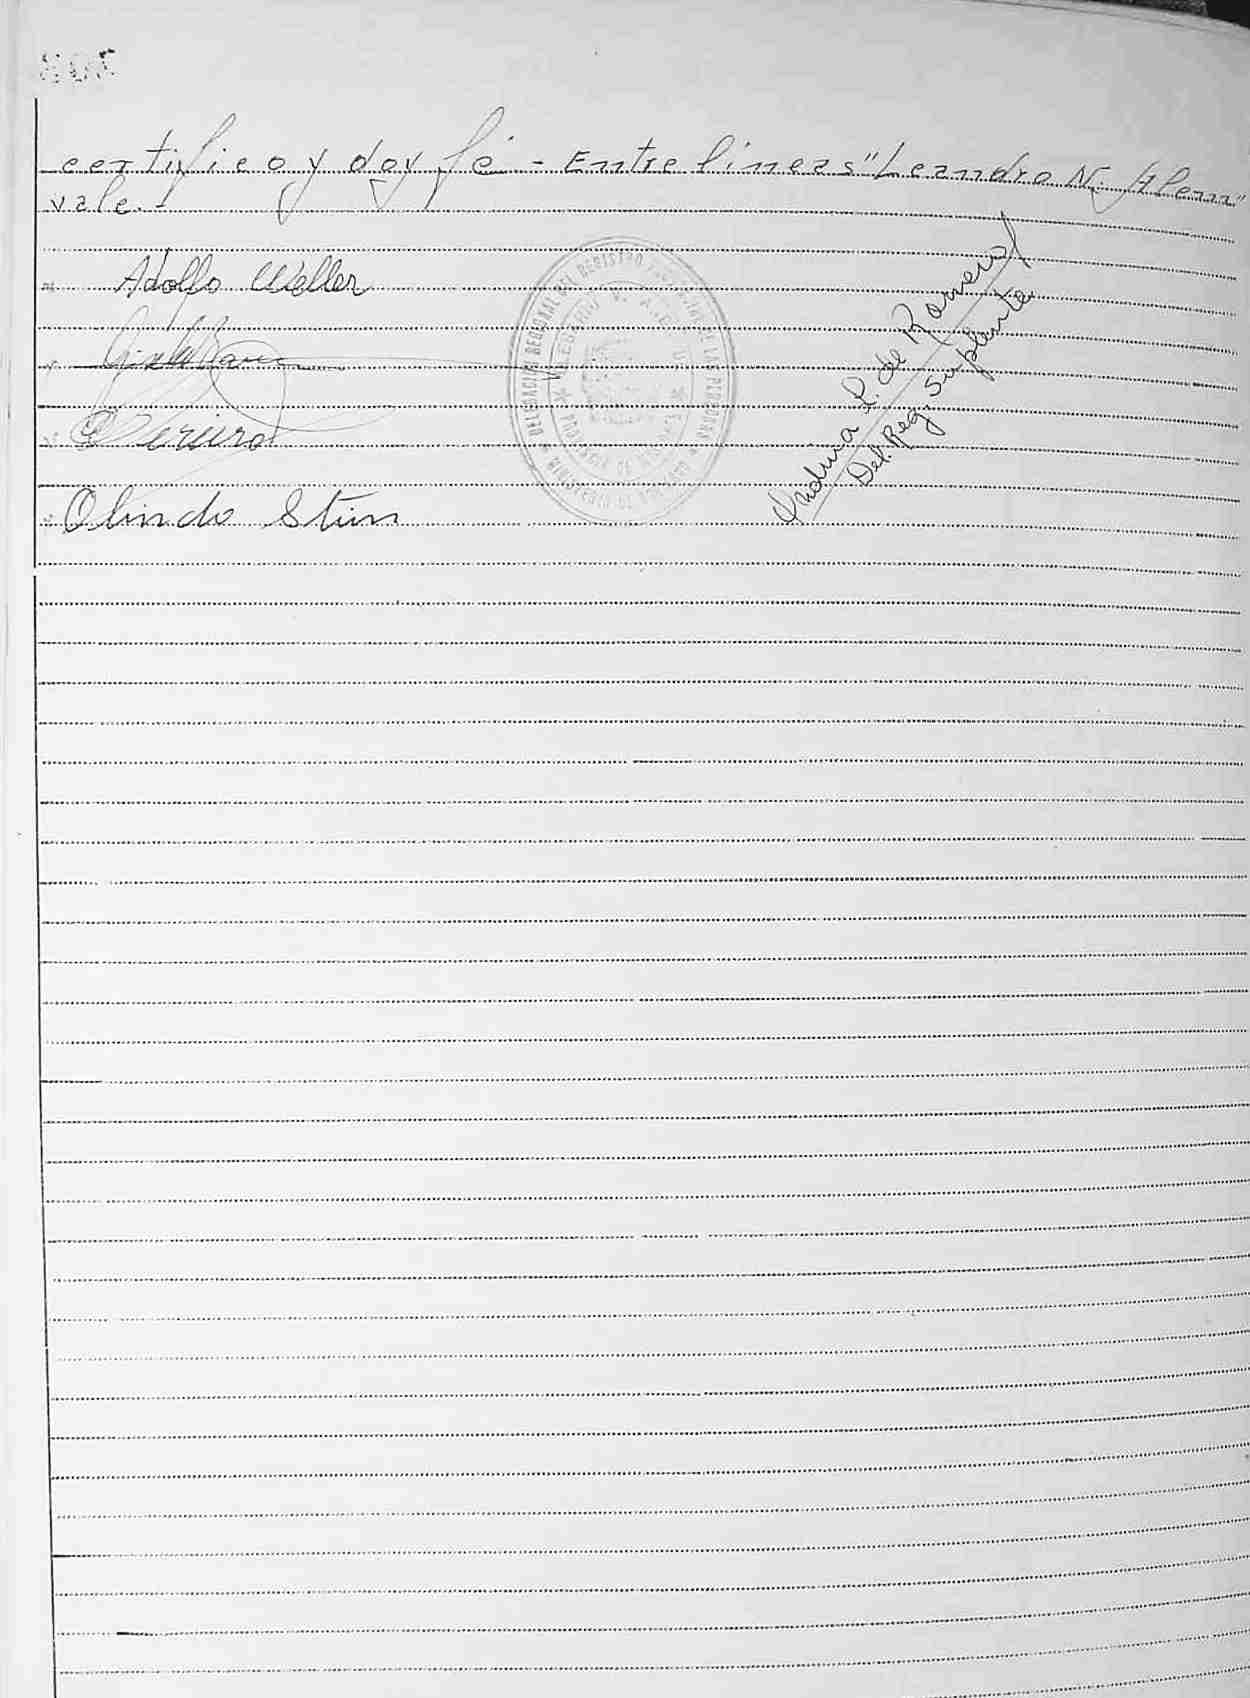 certifico y doy fé - Entre lineas "Leandro N. Alem"
vale. -
Adolfo Weller
Olindo Stein
DELEGACION REGIONAL DEL REGISTRO PROVINCIAL DE LAS PERSONAS
MINISTERIO DE GOBIERNO
PROVINCIA DE MISIONES
L. de Romero
Del. Reg. Suplente